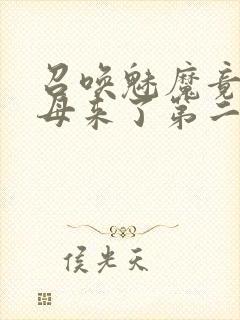 召唤魅魔竟
母来了第二
侯光天